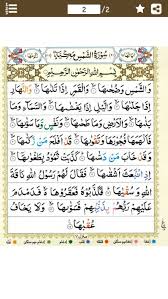 2 /2
سُوْرَةُ الشَّمْسِ مَكِّيَّةٌ
بِسْمِ اللّٰهِ الرَّحْمٰنِ الرَّحِيْمِ
وَالشَّمْسِ وَضُحٰىهَا وَالْقَمَرِ اِذَا تَلٰىهَا وَالنَّهَارِ
اِذَا جَلّٰىهَا وَالَّيْلِ اِذَا يَغْشٰىهَا وَالسَّمَآءِ وَمَا
بَنٰىهَا وَالْاَرْضِ وَمَا طَحٰىهَا وَنَفْسٍ وَّمَا سَوّٰىهَا
فَاَلْهَمَهَا فُجُوْرَهَا وَتَقْوٰىهَا قَدْ اَفْلَحَ مَنْ زَكّٰىهَا
وَقَدْ خَابَ مَنْ دَسّٰىهَا كَذَّبَتْ ثَمُوْدُ بِطَغْوٰىهَا
اِذِ انْۢبَعَثَ اَشْقٰىهَا فَقَالَ لَهُمْ رَسُوْلُ اللّٰهِ نَاقَةَ
اللّٰهِ وَسُقْيٰهَا فَكَذَّبُوْهُ فَعَقَرُوْهَا فَدَمْدَمَ
عَلَيْهِمْ رَبُّهُمْ بِذَنْۢبِهِمْ فَسَوّٰىهَا وَلَا يَخَافُ
عُقْبٰهَا